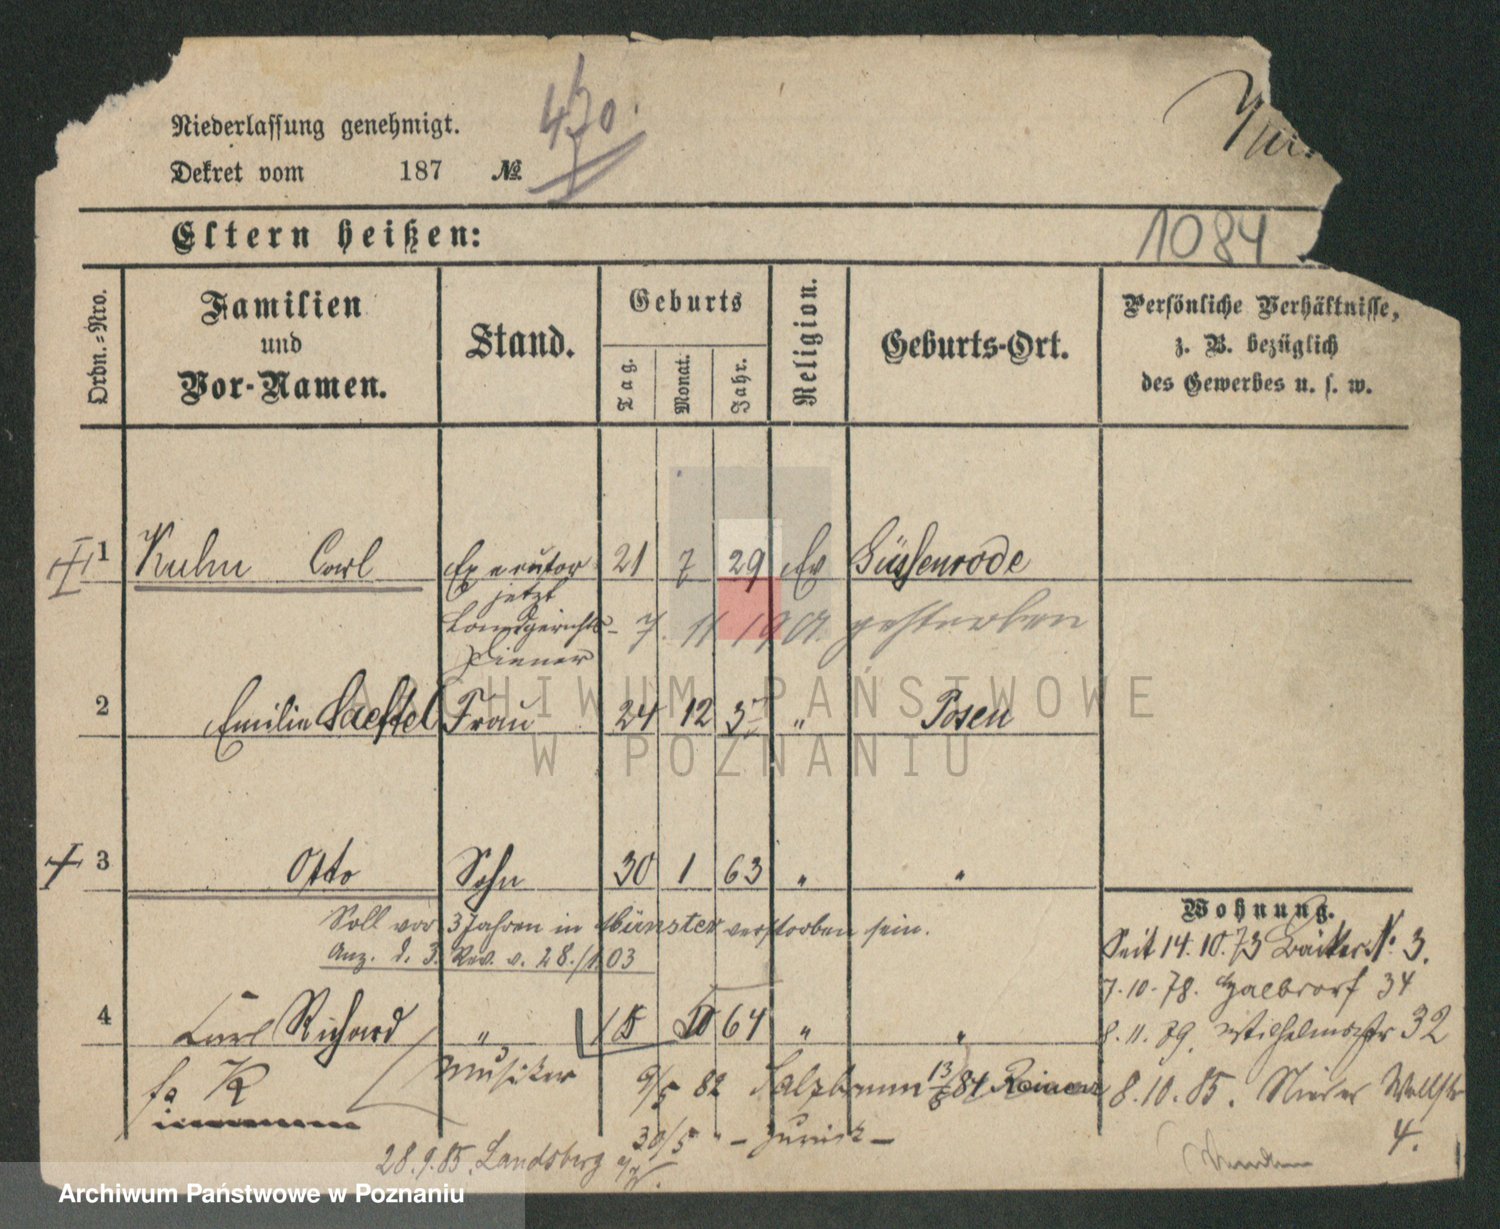 Niederlassung genehmigt.
470.
Dekret vom 187 №
Eltern heißen:
1084
Ordn.-Nro.
Familien
und
Vor-Namen.
Stand.
Geburts
Tag.
Monat.
Jahr.
Religion.
Geburts-Ort.
Persönliche Verhältnisse,
z. B. bezüglich
des Gewerbes u. s. w.
1 Kuhn Carl Executor 21 7 29 Ev Güssenrode
jetzt
Landgerichts- 7. 11 19 gestorben
Diener
2 Emilie Saeftel Frau 24 12 37 " Posen
3 Otto Sohn 30 1 63 " "
Soll vor 3 Jahren in Münster verstorben sein.
Anz. d. 3. Rev. v. 28./1.03
4 Carl Richard " 64 " "
Musiker 9/5 82 Salzbrunn 13/ 84 Reinerz
fa K
30/5 " - zurück -
28.9.85. Landsberg a/W.
Wohnung.
Seit 14.10.73 Bäcker N. 3.
7.10.78. Halbdorf 34
8.11.79. Wilhelmstr 32
8.10.85. Wallstr
4.
ARCHIWUM PAŃSTWOWE
W POZNANIU
Archiwum Państwowe w Poznaniu